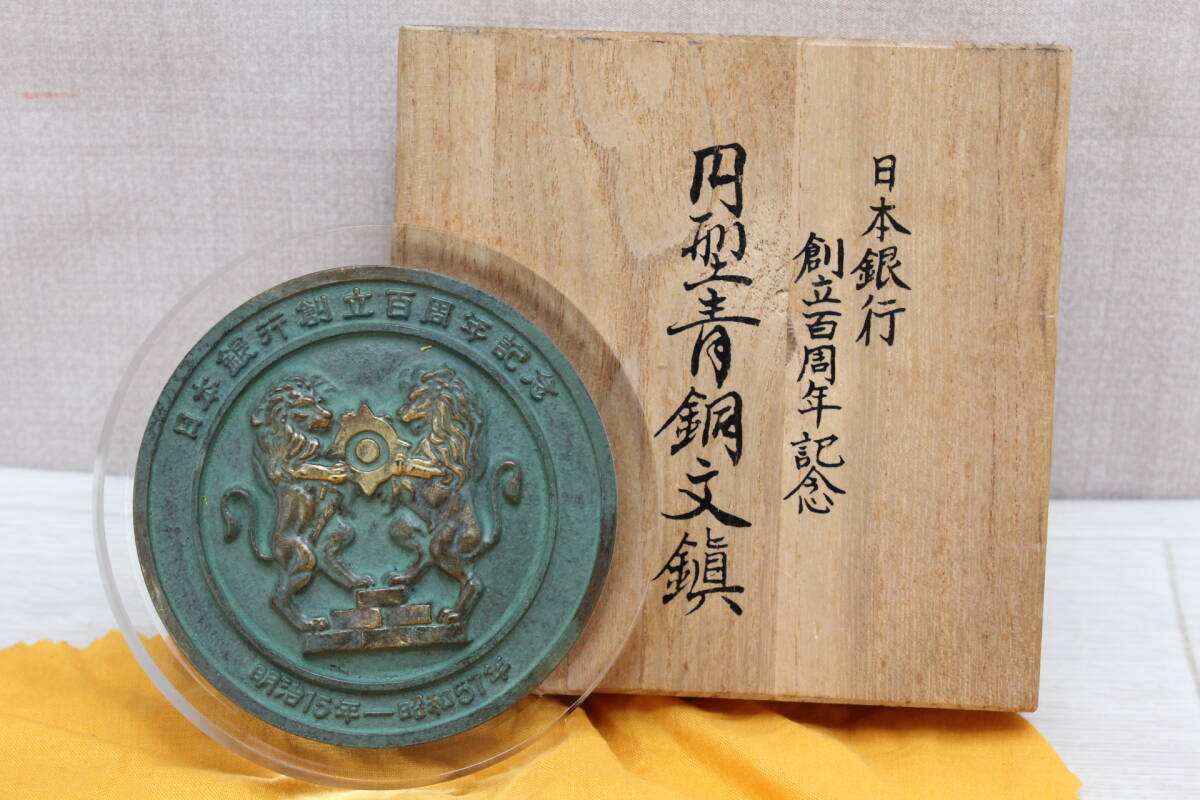 日本銀行
創立百周年記念
円型青銅文鎮
日本銀行創立百周年記念
明治15年―昭和57年